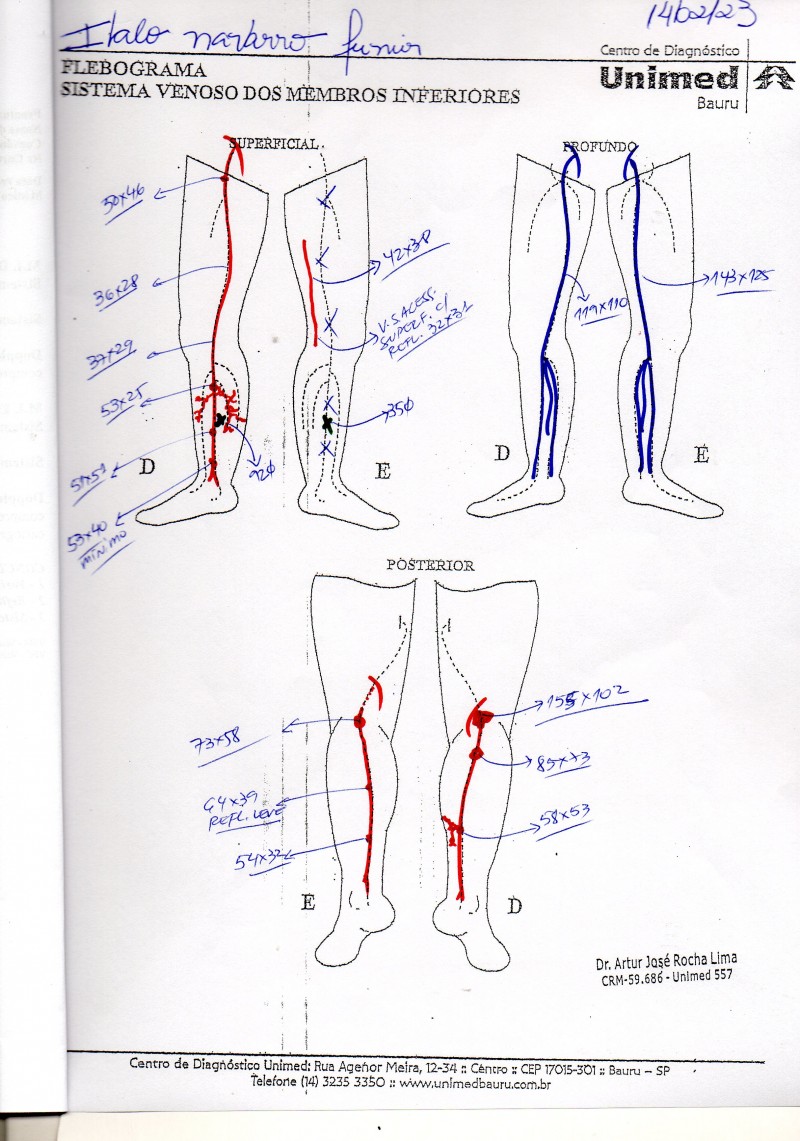 14/02/23
Italo Navarro Junior
Centro de Diagnóstico
Unimed
Bauru
FLEBOGRAMA
SISTEMA VENOSO DOS MEMBROS INFERIORES
SUPERFICIAL
PROFUNDO
30x46
42x38
36x28
143x125
119x110
V.S.ACESS.
SUPERF. C/
REFL. 32x31
37x29
53x25
35Ø
92Ø
D
E
D
E
51x51
53x40
MÍNIMO
POSTERIOR
155x102
73x58
85x73
64x39
REFL. LEVE
58x53
54x32
E
D
Dr. Artur José Rocha Lima
CRM-59.686 - Unimed 557
Centro de Diagnóstico Unimed: Rua Agenor Meira, 12-34 :: Centro :: CEP 17015-301 :: Bauru – SP
Telefone (14) 3235 3350 :: www.unimedbauru.com.br